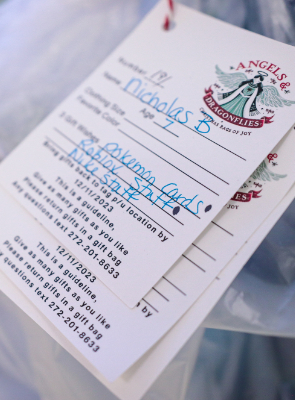 ANGELS &
DRAGONFLIES
OF JOY
Number: 191
Name: Nicholas B
Clothing Size Age 7
Favorite Color
3 Gift Wishes Pokemon Cards
Roblox Stuff
Nike Stuff
Bring gifts back to tag p/u location by
12/11/2023
This is a guideline.
Please return as many gifts as you like
in a gift bag
Any questions text 272-201-8633
OF JOY
by
12/11/2023
This is a guideline.
many gifts as you like
Please return gifts in a gift bag
text 272-201-8633